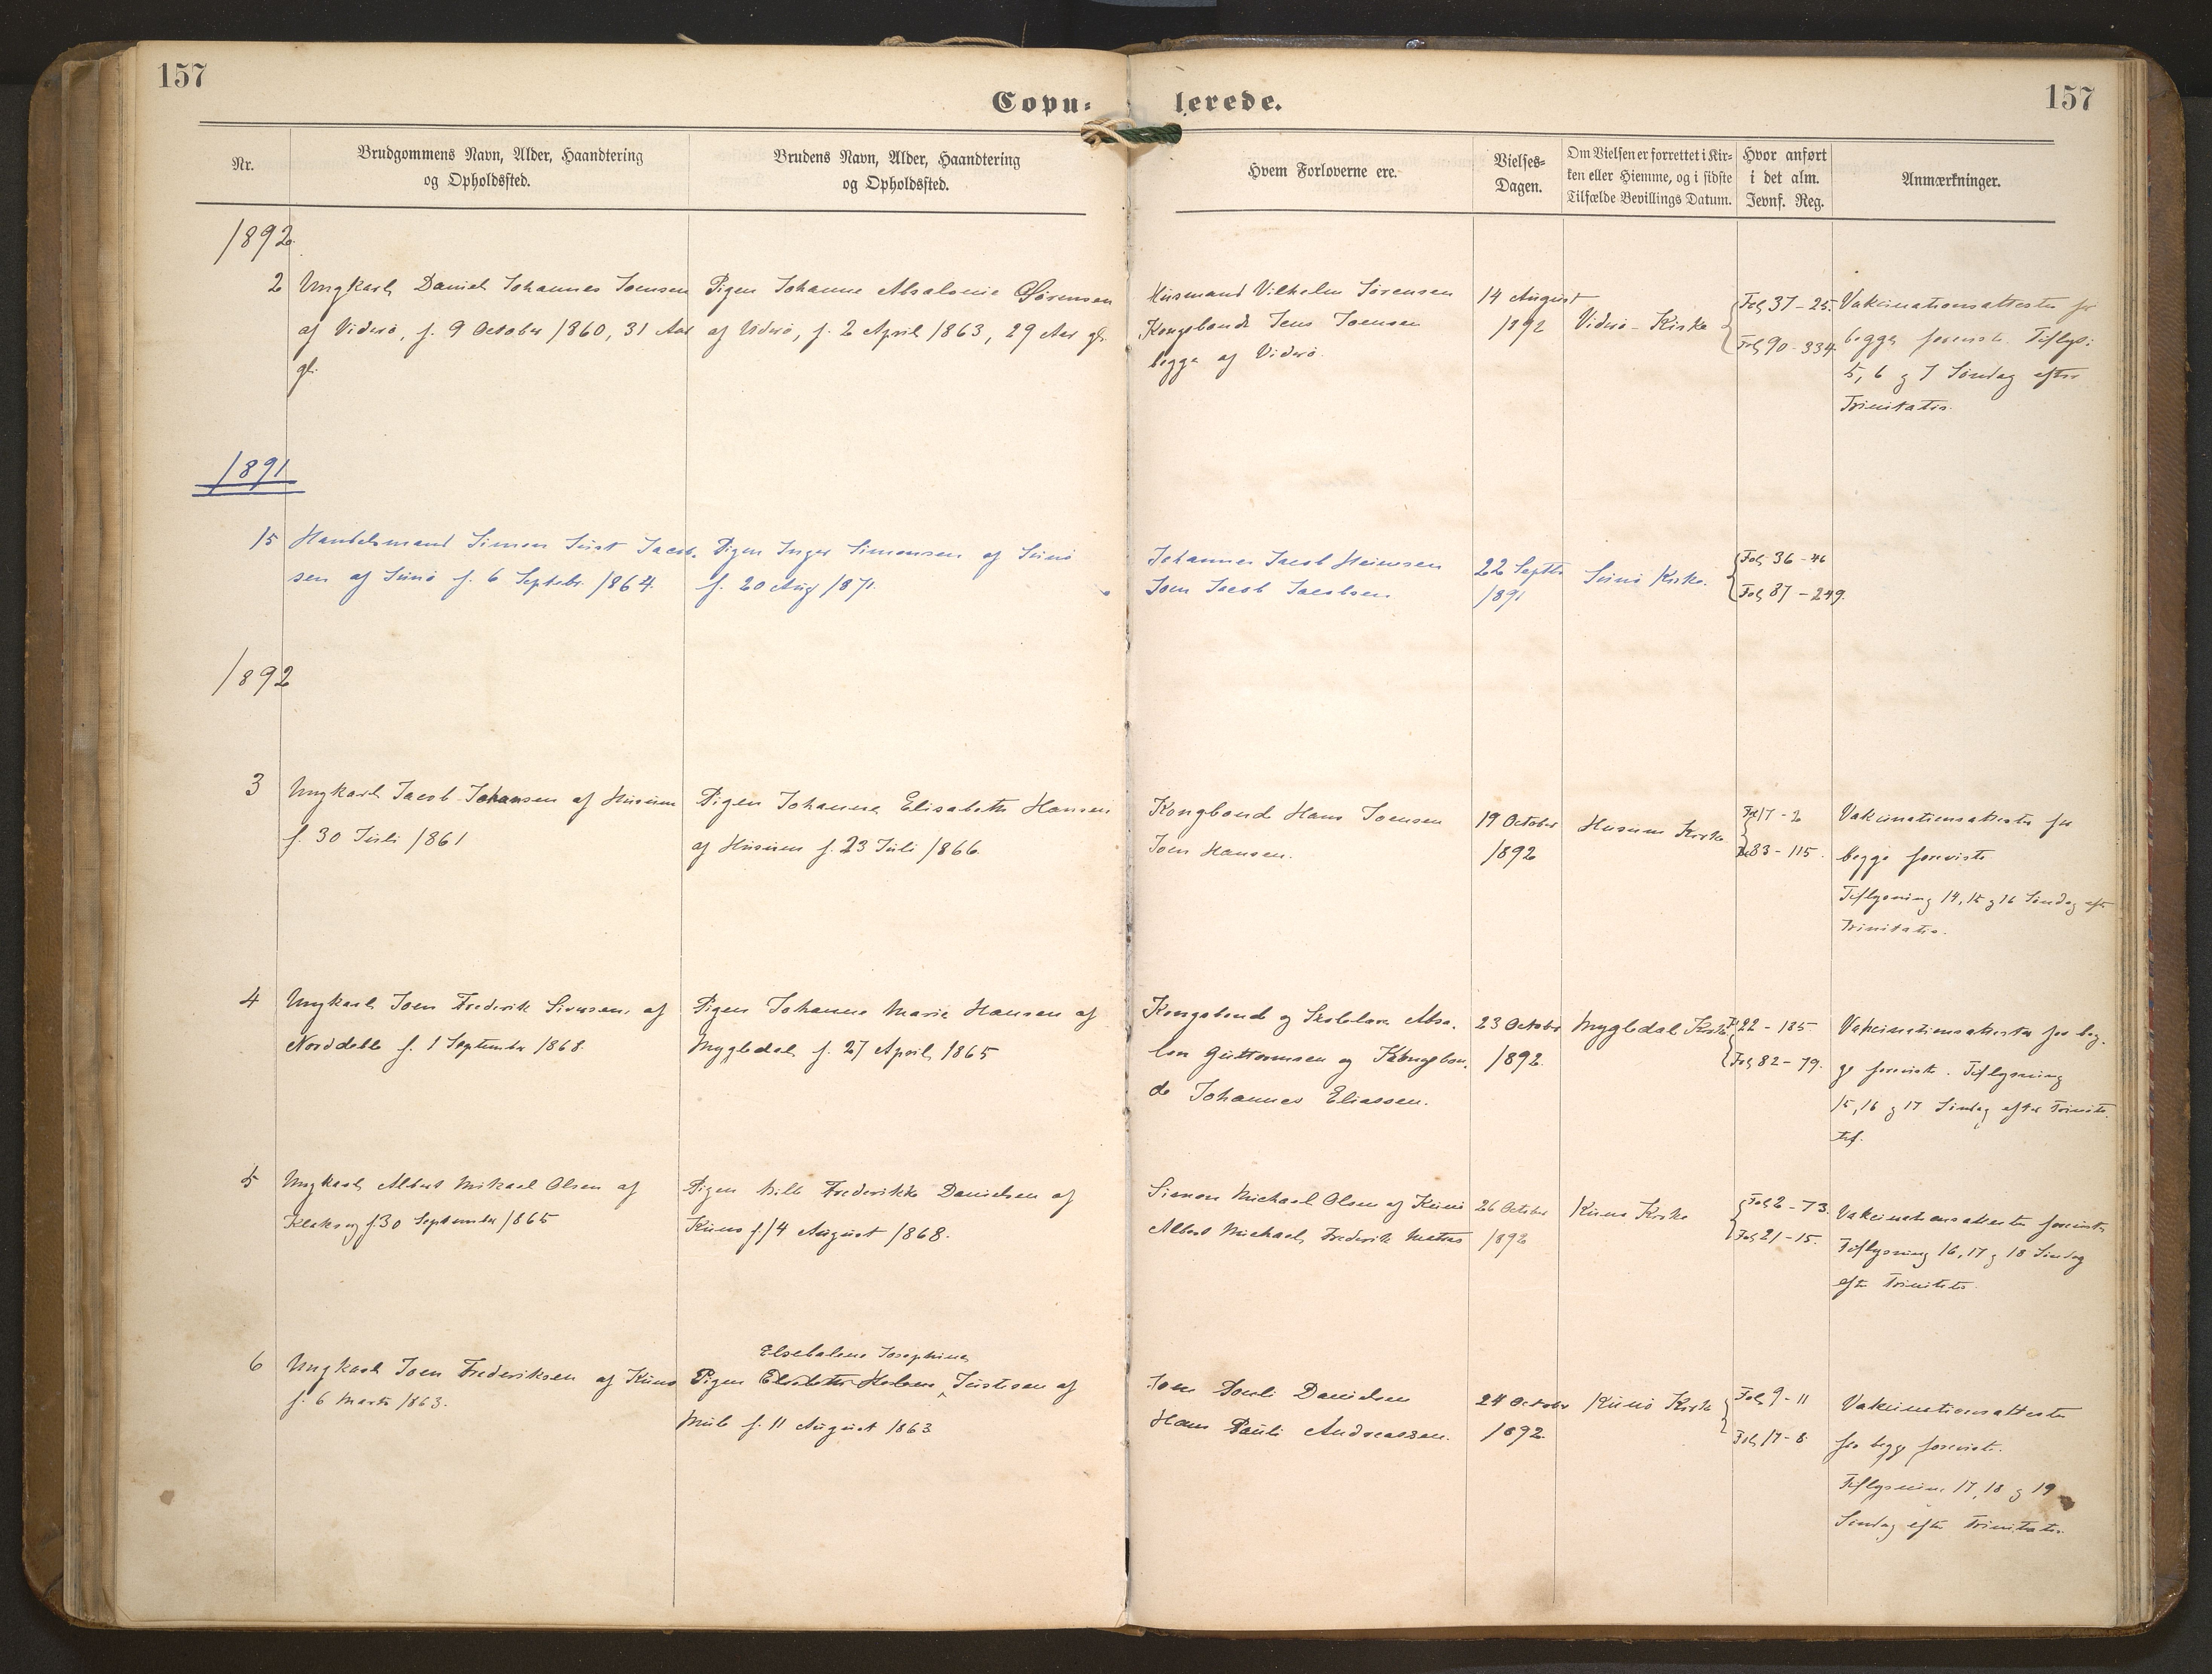 157
157
Copu- lerede.
Nr.
Brudgommens Navn, Alder, Haandtering
og Opholdssted.
Brudens Navn, Alder, Haandtering
og Opholdssted.
Hvem Forloverne ere.
Vielses-
Dagen.
Om Vielsen er forrettet i Kir-
ken eller Hiemme, og i sidste
Tilfælde Bevillings Datum.
Hvor anført
i det alm.
Jevnf. Reg.
Anmærkninger.
1892
2
Ungkarl Daniel Johannes Joensen
af Viderø, f. 9 October 1860, 31 Aar
gl.
Pigen Johanne Absalonie Sørensen
af Viderø, f. 2 April 1863, 29 Aar gl.
Husmand Vilhelm Sørensen
Kongsbonde Jens Joensen
begge af Viderø.
14 August
1892
Viderø-Kirke
Fol 37-25.
Fol 90-334.
Vakcinationsattester for
begge forevist. Tillys:
5, 6 og 7 Søndag efter
Trinitatis.
1891
15
Handelsmand Simon Just Jacob-
sen af Sunø f. 6 Septebr. 1864.
Pigen Inger Simonsen af Sunø
f. 20 Aug 1871.
Johannes Jacob Heinesen
Joen Jacob Jacobsen
22 Septbr
1891
Sunø Kirke.
Fol 36-46
Fol 87-249.
1892
3
Ungkarl Jacob Johansen af Husum
f. 30 Juli 1861
Pigen Johanna Elisabeth Hansen
af Husum f. 23 Juli 1866.
Kongbonde Hans Joensen
Joen Hansen.
19 October
1892
Husum Kirke
Fol 17-2
Fol 83-115.
Vakcinationsattester for
begge foreviste
Tillysning 14, 15 og 16 Søndag eft
Trinitatis.
4
Ungkarl Joen Frederik Siversen, af
Norddeble f. 1 September 1868.
Pigen Johanne Marie Hansen af
Mygledal f. 27 April 1865
Kongsbonde og Skolelærer Absa-
lon Guttormsen og Kongsbon-
de Johannes Eliassen.
23 October
1892.
Mygledal Kirke
Fol 22-185
Fol 82-79.
Vakcinationsattester for beg-
ge foreviste. Tillysning
15, 16 og 17 Søndag efter Trinita-
tis.
5
Ungkarl Albert Mikael Olsen af
Klaksvig f. 30 September 1865
Pigen Frederikke Danielsen af
Kunø f. 14 August 1868.
Simon Michael Olsen af Kunø
Albert Michael Frederik Matras
26 October
1892
Kunø Kirke
Fol 2-73.
Fol 21-15.
Vakcinationsattester foreviste
Tillysning 16, 17 og 18 Søndag
efter Trinitatis.
6
Ungkarl Joen Frederiksen af Kunø
f. 6 Marts 1863.
Elsebalene Josephine
Pigen Elisabeth Helene Justesen af
Mule f. 11 August 1863
Joen Pouli Danielsen
Hans Pauli Andreassen.
24 October
1892.
Kunø Kirke
Fol 9-11
Fol 17-8
Vakcinationsattester
for begge foreviste.
Tillysning 17, 18 og 19
Søndag efter Trinitatis.